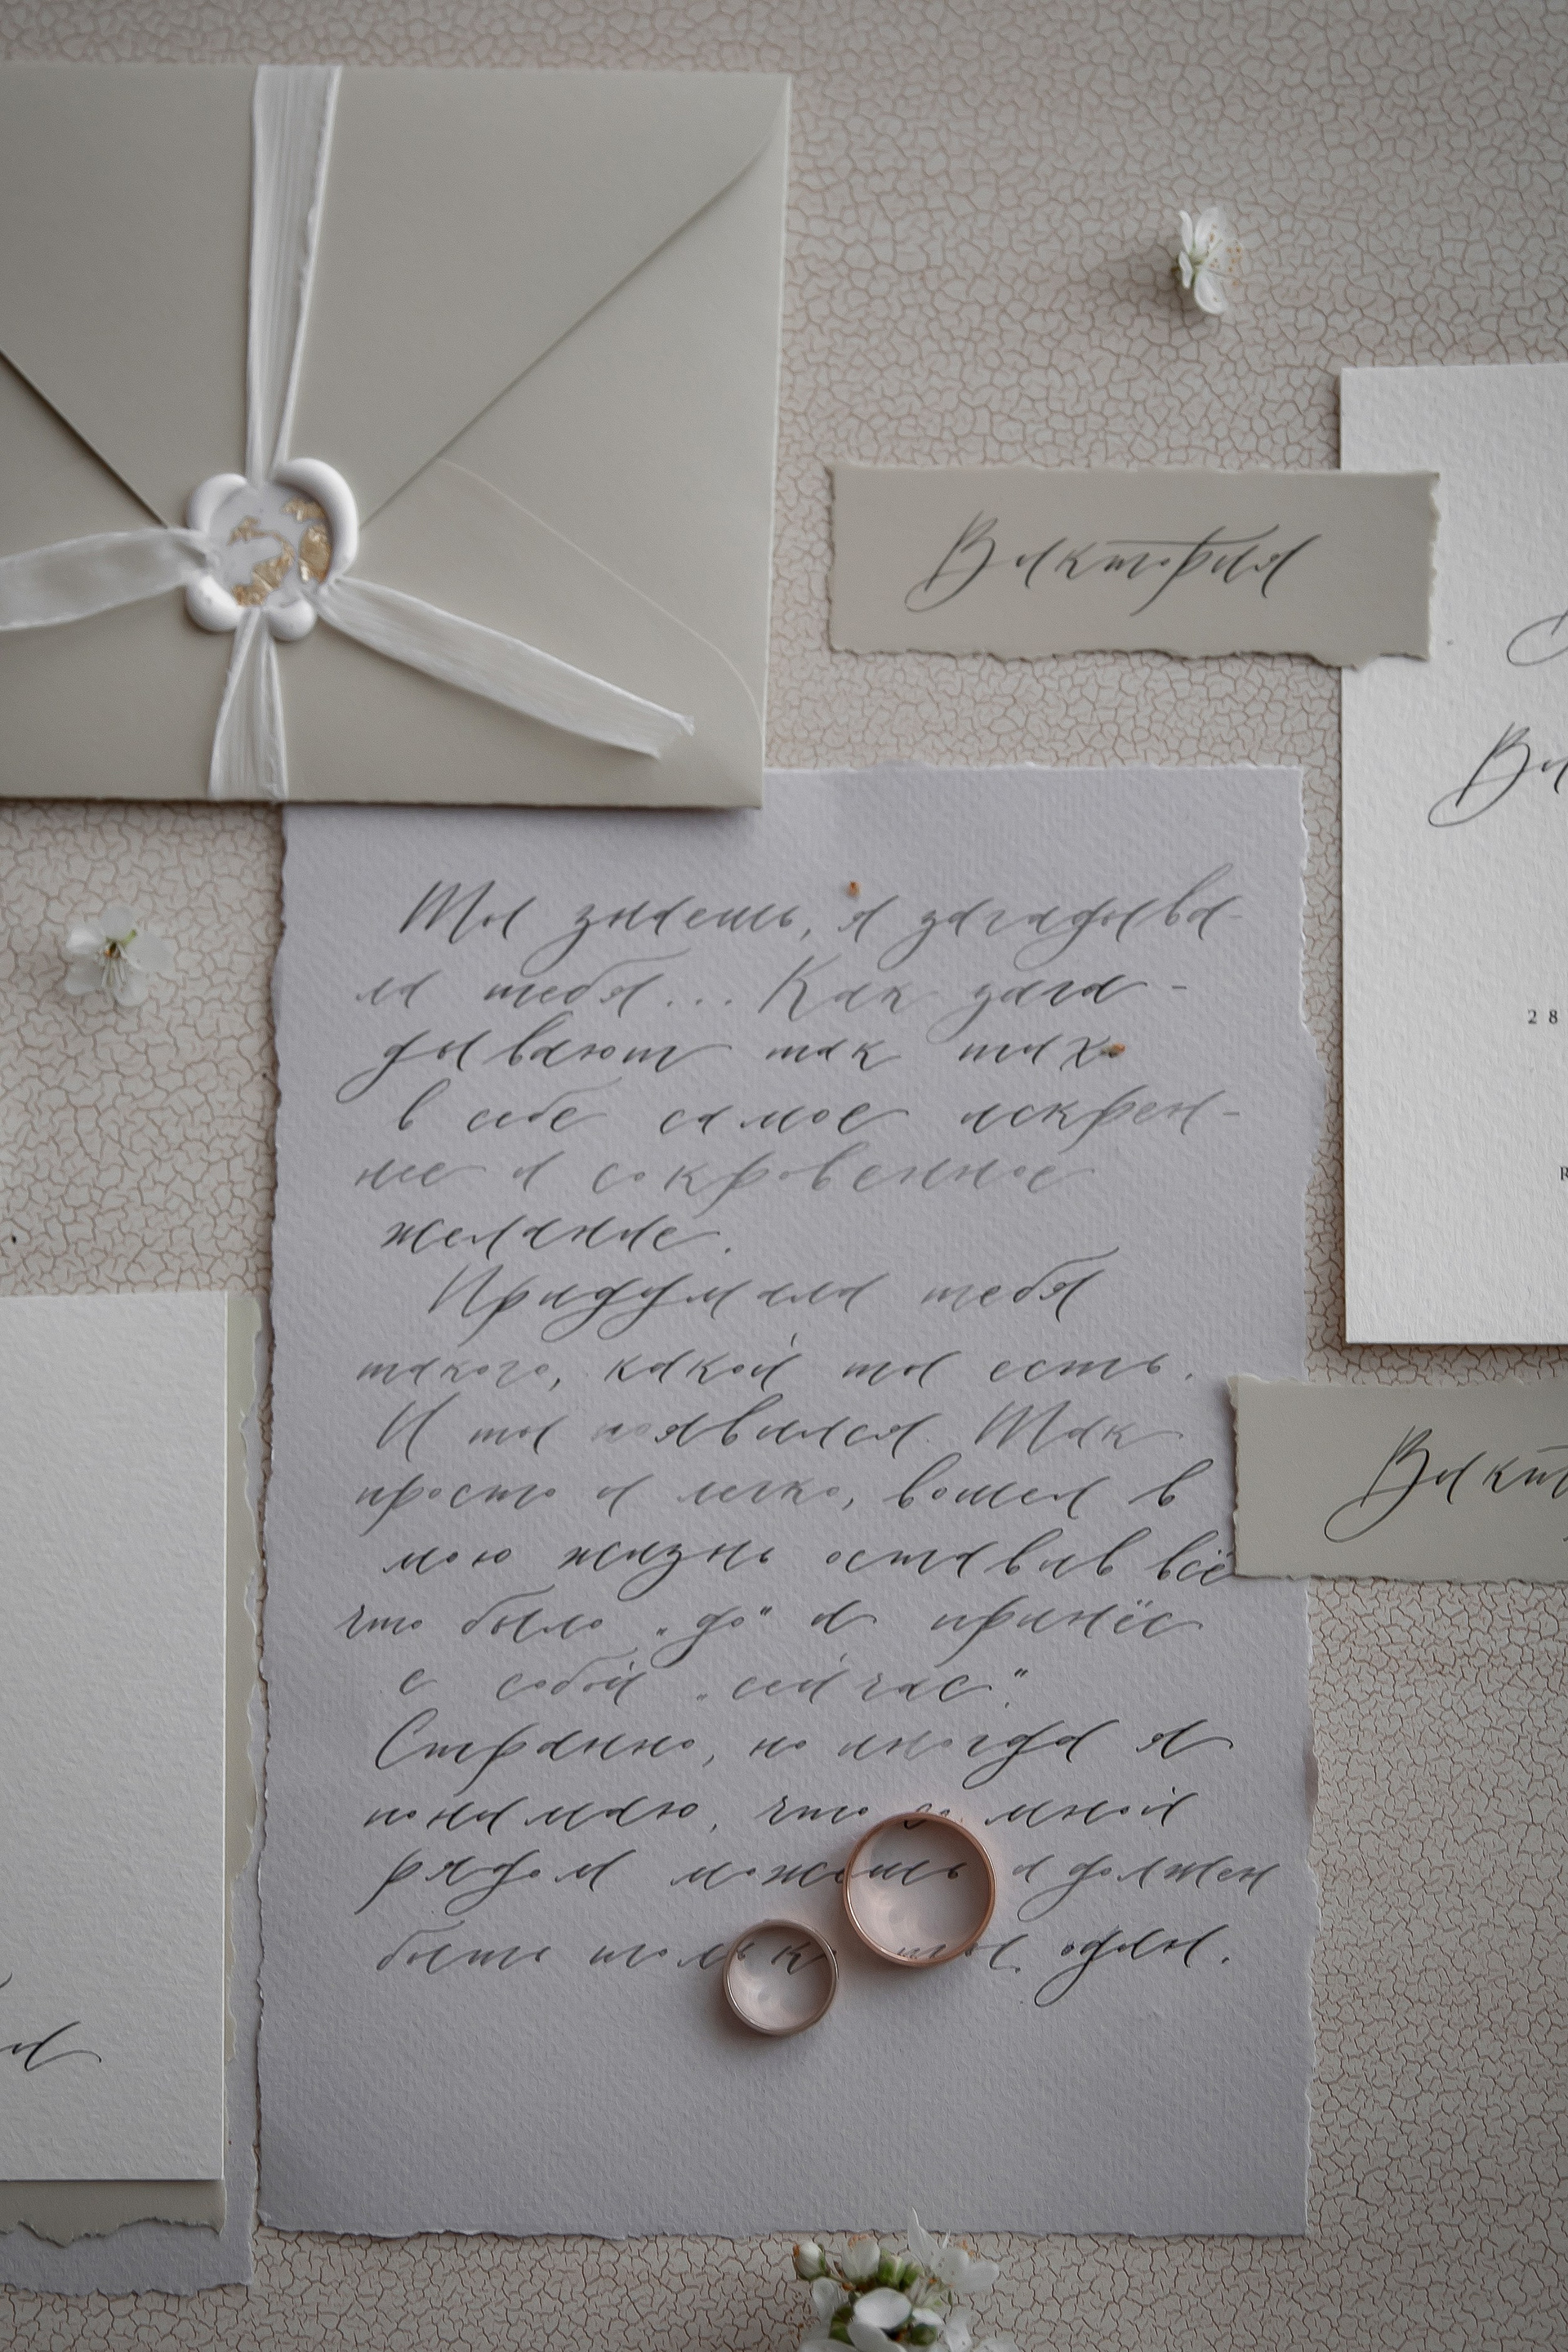 Виктория
Ви
28
R
Ты знаешь, я загадыва-
ла тебя... Как зага-
дывают так тихо
в себе самое искрен-
нее и сокровенное
желание.
Придумала тебя
такого, какой ты есть.
И ты появился. Так
просто и легко, вошел в
мою жизнь оставив всё
что было „до" и принёс
с собой „сейчас".
Странно, но иногда я
понимаю, что со мной
рядом можешь и должен
быть только ты один.
Викт